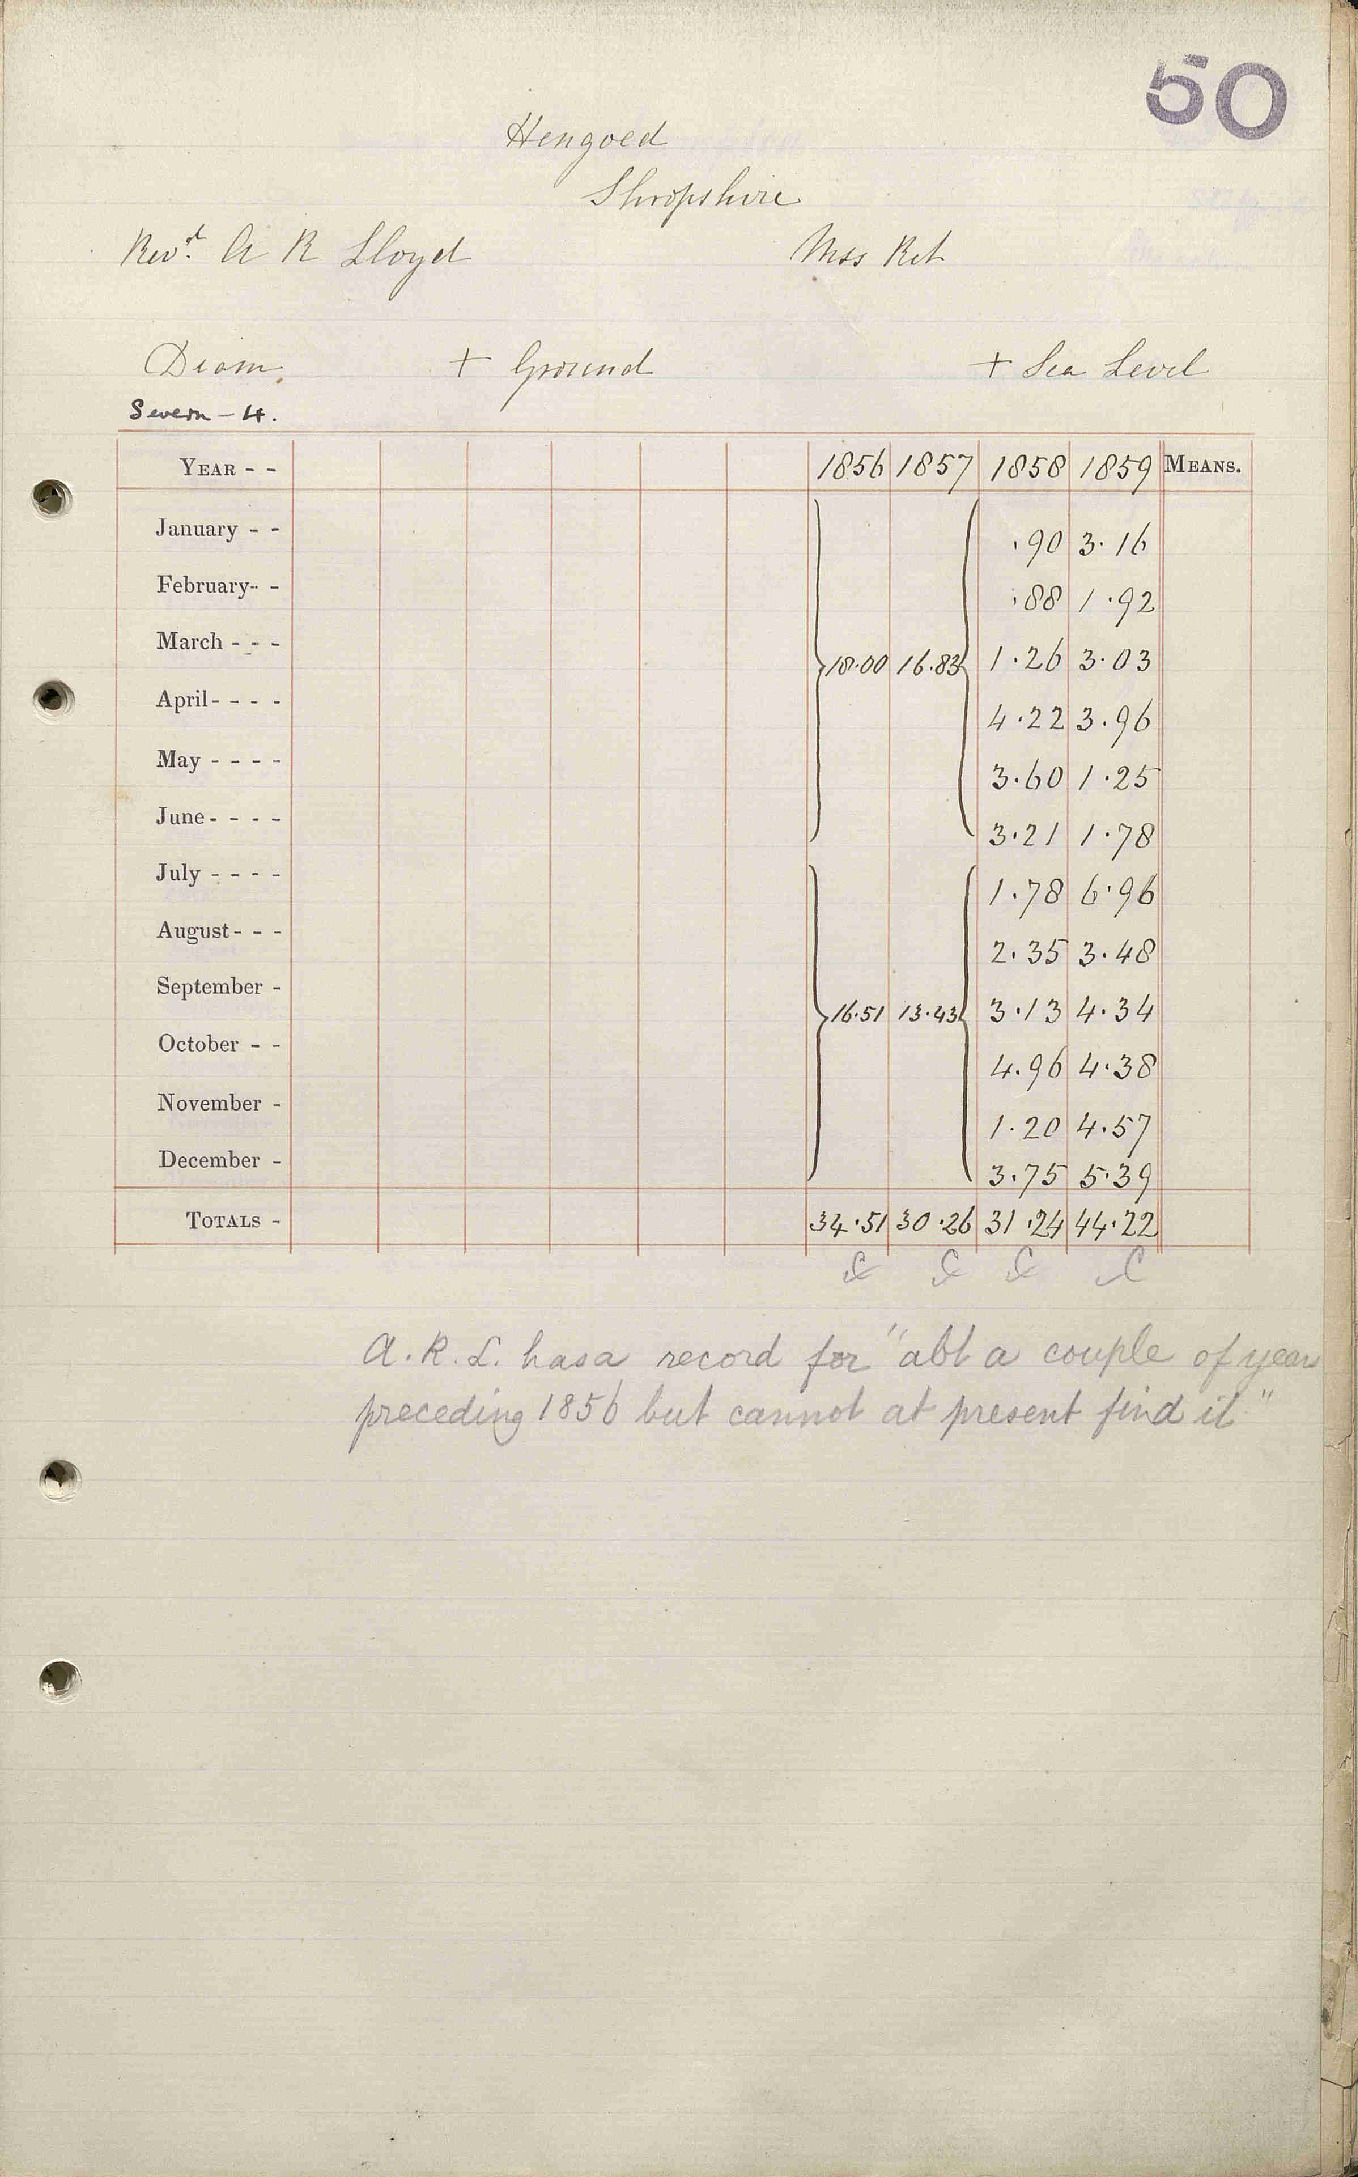 50
Hengoed
Shropshire
Revd. A R Lloyd Mss Ret
Diam. + Ground + Sea Level
Severn - 4.
YEAR - - 1856 1857 1858 1859 MEANS.
January - - .90 3.16
February - - .88 1.92
March - - - 18.00 16.83 1.26 3.03
April - - - - 4.22 3.96
May - - - - 3.60 1.25
June - - - - 3.21 1.78
July - - - - 1.78 6.96
August - - - 2.35 3.48
September - 16.51 13.43 3.13 4.34
October - - 4.96 4.38
November - 1.20 4.57
December - 3.75 5.39
TOTALS - 34.51 30.26 31.24 44.22
A.R.L. has a record for "abt a couple of years
preceding 1856 but cannot at present find it"